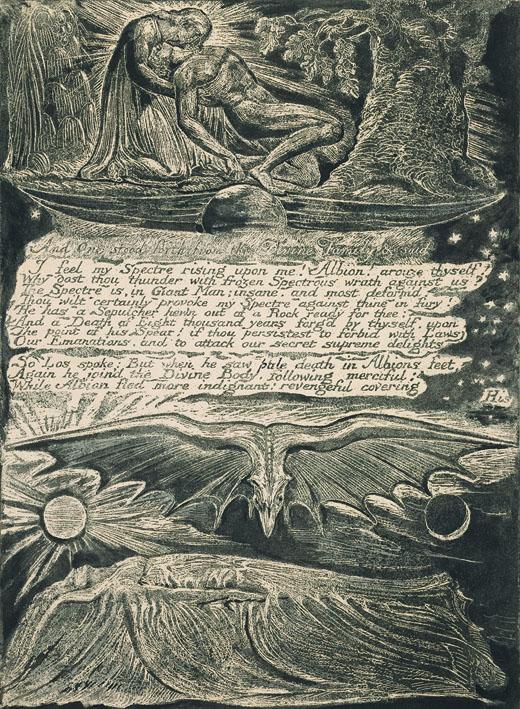 And One stood forth from the Divine Family & said
I feel my Spectre rising upon me! Albion! arouze thyself!
Why dost thou thunder with frozen Spectrous wrath against us?
The Spectre is, in Giant Man; insane, and most deform'd.
Thou wilt certainly provoke my Spectre against thine in fury!
He has a Sepulcher hewn out of a Rock ready for thee:
And a Death of Eight thousand years forg'd by thyself, upon
The point of his Spear! if thou persistest to forbid with Laws
Our Emanations, and to attack our secret supreme delights
So Los spoke: But when he saw pale death in Albions feet,
Again he join'd the Divine Body, following merciful;
While Albion fled more indignant: revengeful covering
His